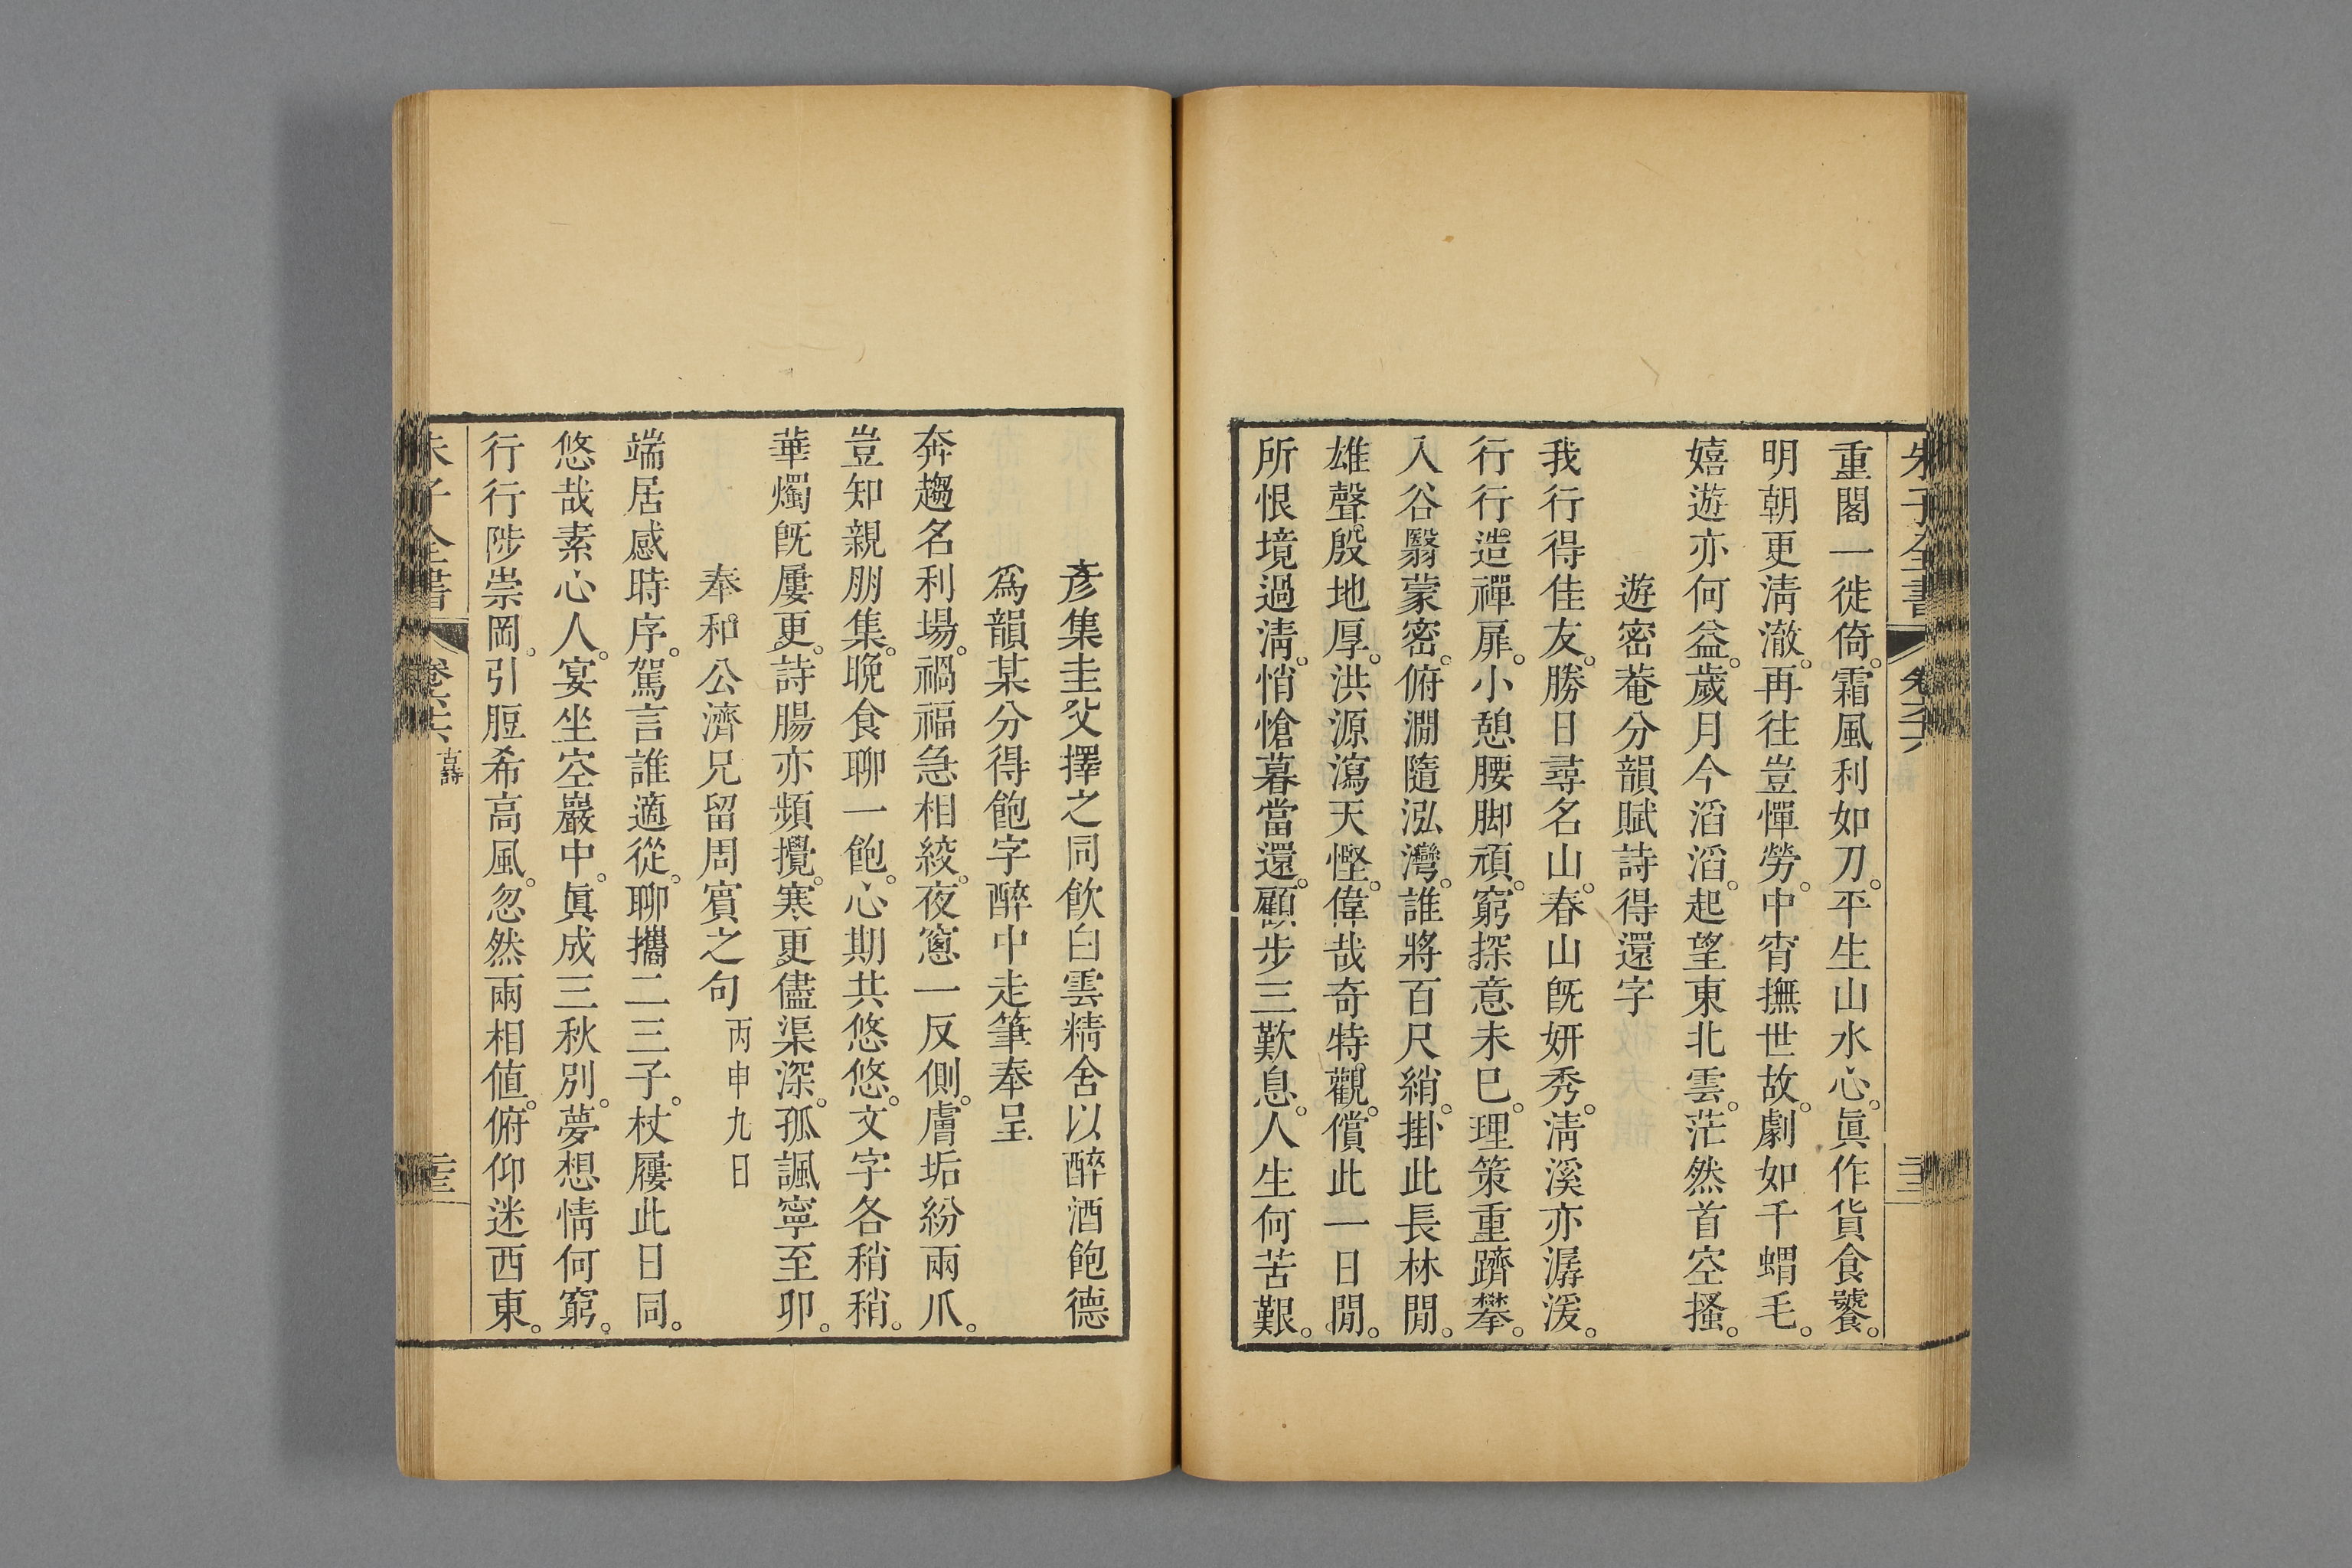 朱子全書 卷六十六
重閣一徙倚。霜風利如刀。平生山水心。眞作貨食饕。
明朝更淸澈。再往豈憚勞。中宵撫世故。劇如千蝟毛。
嬉遊亦何益。歲月今滔滔。起望東北雲。茫然首空搔。
遊密菴分韻賦詩得還字
我行得佳友。勝日尋名山。春山旣妍秀。淸溪亦潺湲。
行行造禪扉。小憩腰脚頑。窮探意未已。理策重躋攀。
入谷翳蒙密。俯澗隨泓灣。誰將百尺綃。掛此長林閒。
雄聲殷地厚。洪源瀉天慳。偉哉奇特觀。償此一日閒。
所恨境過淸。悄愴暮當還。顧步三歎息。人生何苦艱。
彥集圭父擇之同飮白雲精舍以醉酒飽德
爲韻某分得飽字醉中走筆奉呈
奔趨名利場。禍福急相絞。夜窻一反側。膚垢紛兩爪。
豈知親朋集。晚食聊一飽。心期共悠悠。文字各稍稍。
華燭旣屢更。詩腸亦頻攪。寒更儘渠深。孤諷寧至卯。
奉和公濟兄留周賓之句 丙申九日
端居感時序。駕言誰適從。聊攜二三子。杖屨此日同。
悠哉素心人。宴坐空巖中。眞成三秋別。夢想情何窮。
行行陟崇岡。引脰希高風。忽然兩相値。俯仰迷西東。
朱子全書 卷六十六 古詩